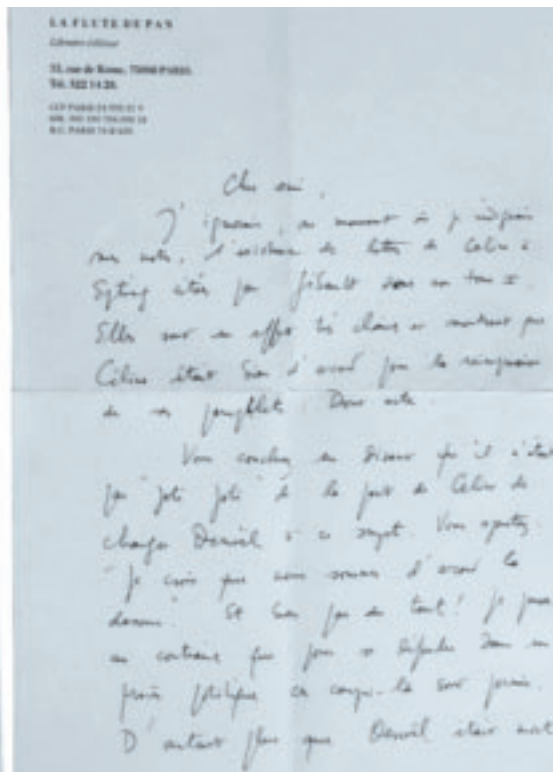 LA FLUTE DE PAN
Libraire éditeur
53, rue de Rome, 75008 PARIS
Tél. 522 14 20
Cher ami,
J'ignorais, au moment où je rédigeais
ma note, l'existence de lettres de Céline à
citées par Gibault dans son tome II.
Elles sont en effet très claires et montrent que
Céline était bien d'accord pour la réimpression
de ses pamphlets. Dont acte.
Vous concluez en disant qu'il n'était
pas "joli joli" de la part de Céline de
charger Denoël à ce sujet. Vous ajoutez
"Je crois que nous sommes d'accord là
dessus". Et bien pas du tout! Je pense
au contraire que pour se défendre dans un
procès politique ce coup-là sont permis.
D'autant plus que Denoël était mort